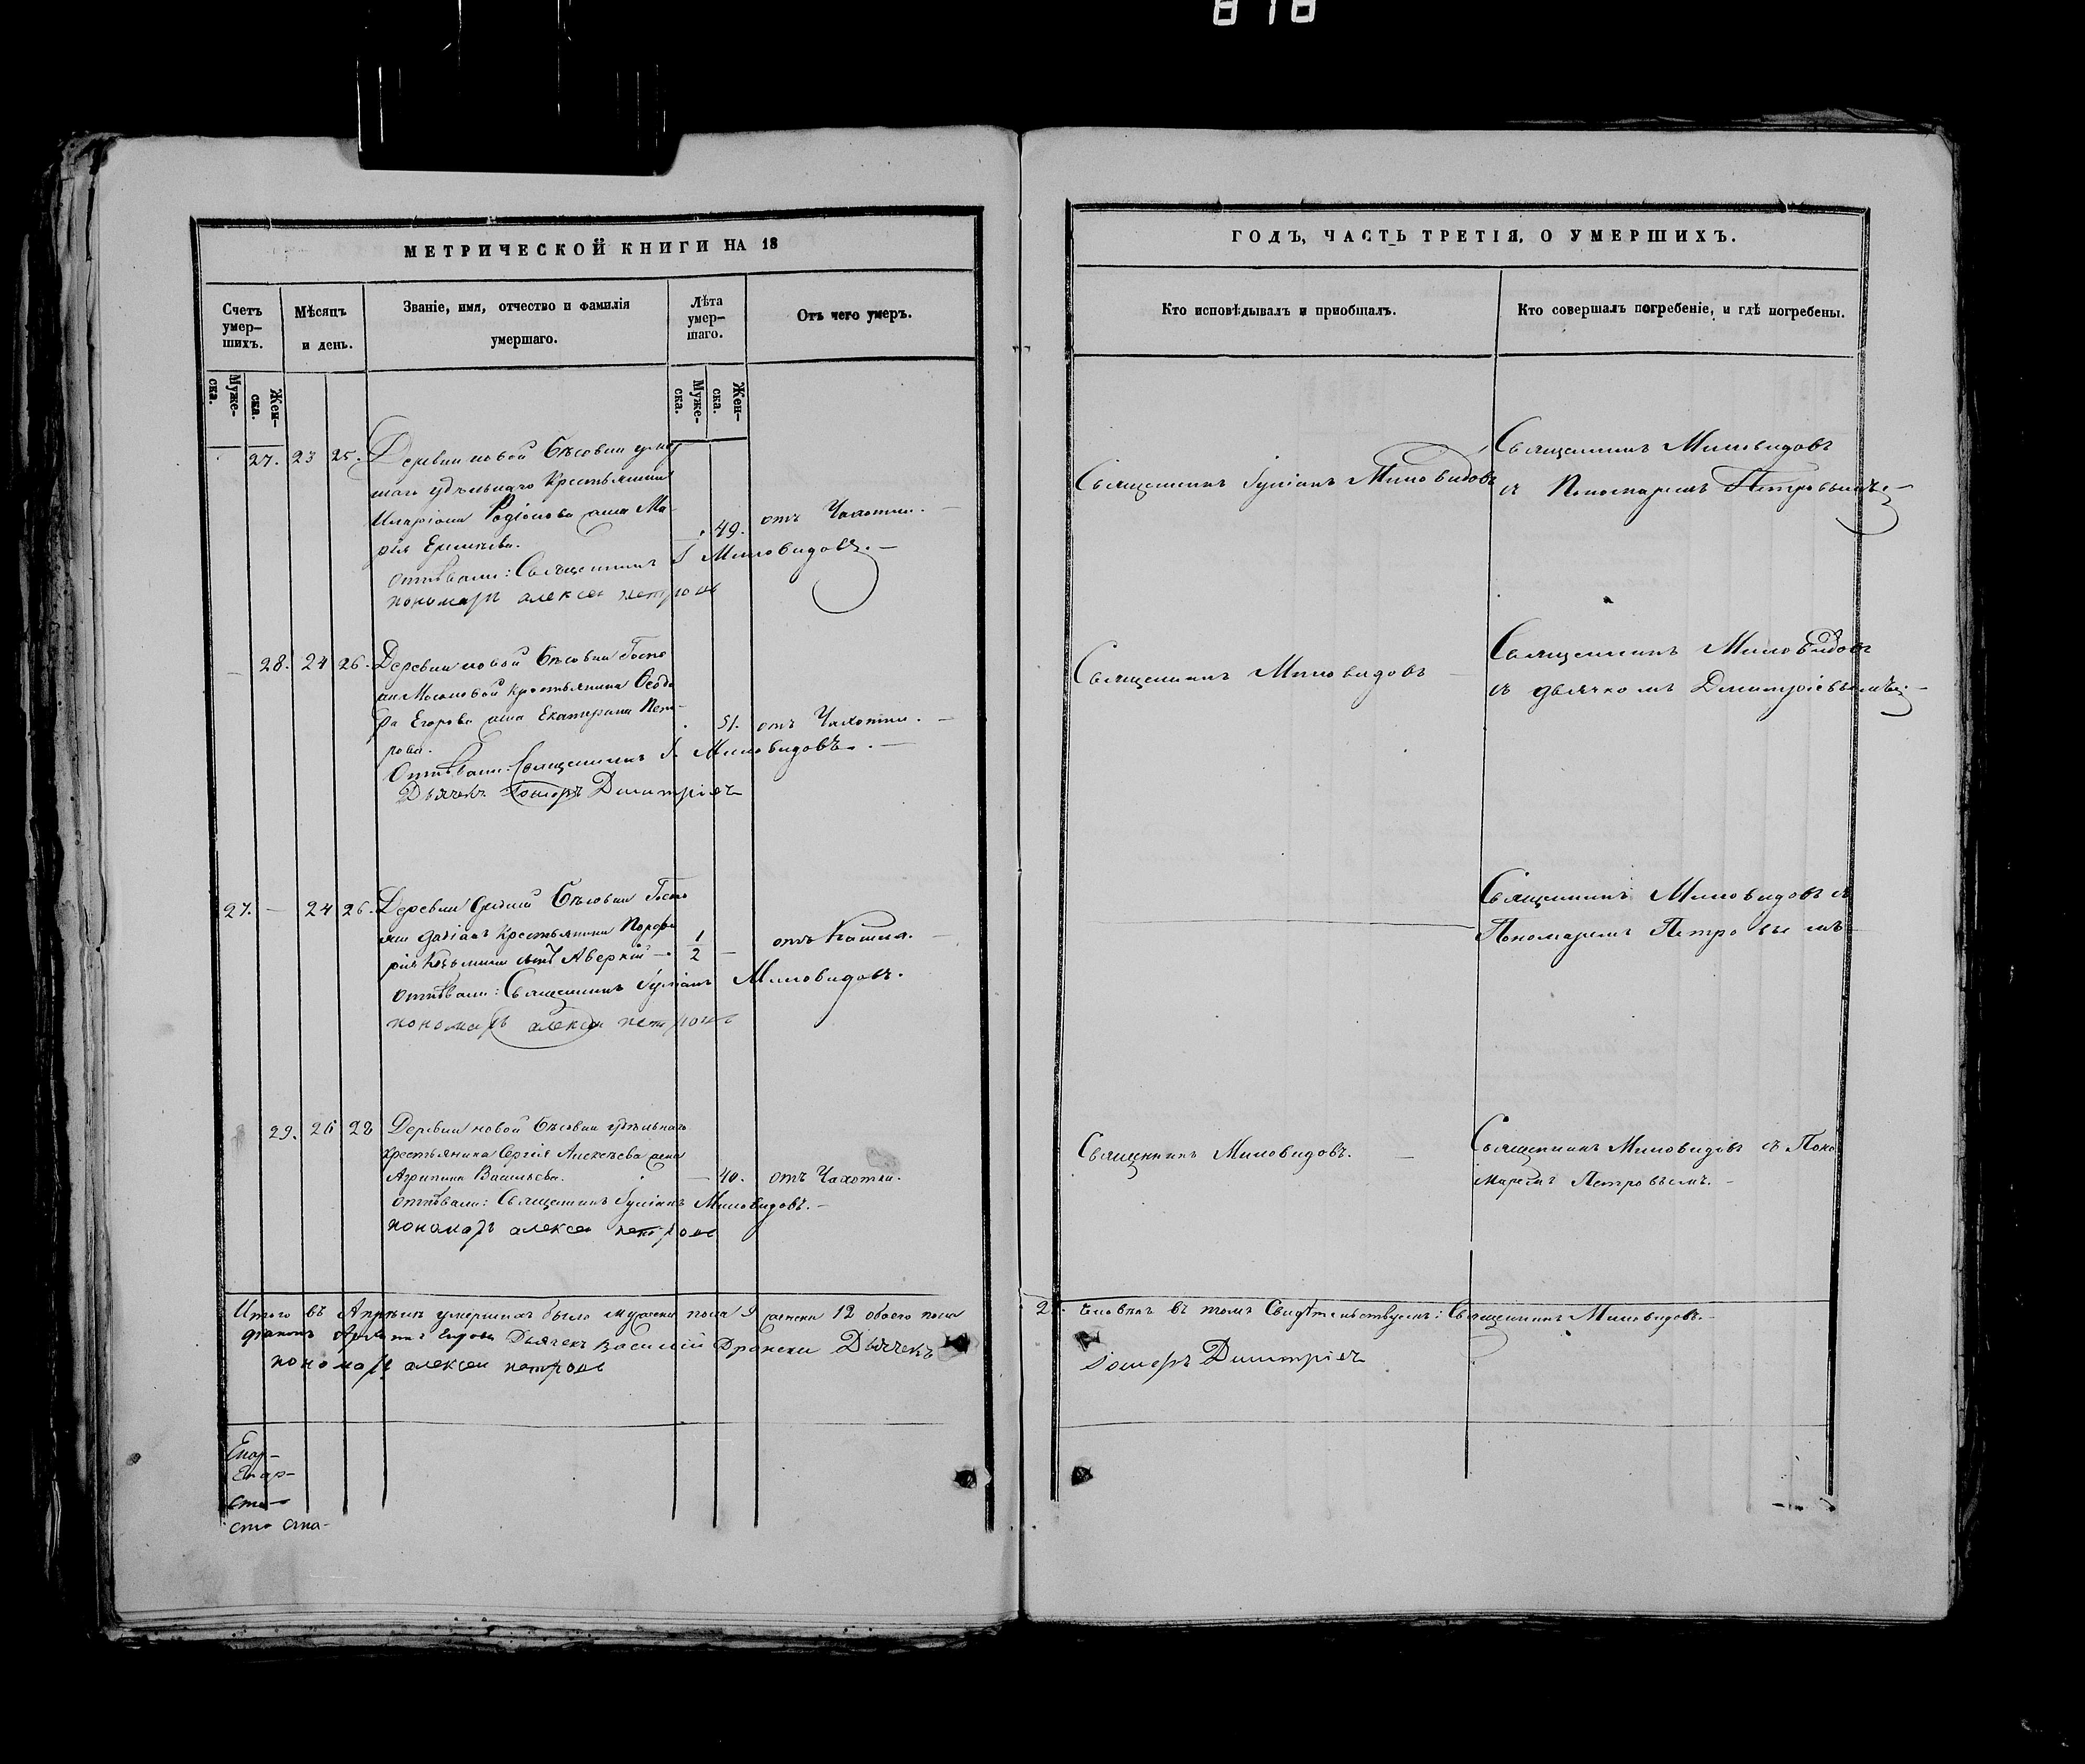 818
МЕТРИЧЕСКОЙ КНИГИ НА 18
Счетъ умер-шихъ.
Мѣсяцъ и день.
Званіе, имя, отчество и фамилія умершаго.
Лѣта умер-шаго.
Отъ чего умеръ.
Муже-ска.
Жен-ска.
Муже-ска.
Жен-ска.
27. 23 25. Деревни новой Бѣсовки
удѣльнаго крестьянина
Иларіона Родіонова жена Ма-
рія 49. отъ Чахотки.
Отпѣвали: Священникъ І Миловидовъ.
пономарь алексеи петровъ
28. 24 26. Деревни новой Бѣсовки Госпо
жи крестьянина
Егорова жена Екатерина Пет-
рова. 51. отъ Чахотки.
Отпѣвали: Священникъ І. Миловидовъ.
Дьячекъ Димитріевъ
27. — 24 26. Деревни Бѣсовки Госпо
жи крестьянина Порфи
рія Козьмина сынъ Аверкій 1/2 — отъ Кашля.
Отпѣвали: Священникъ Іуліанъ Миловидовъ.
пономарь алексеи петровъ
29. 26 28 Деревни новой Бѣсовки удѣльнаго
крестьянина Сергія Алексѣева жена
Агрипина Васильева. — 40. отъ Чахотки.
Отпѣвали: Священникъ Іуліанъ Миловидовъ.
пономарь алексеи петровъ
Итого въ Апрѣлѣ умершихъ было мужеска пола 9 женска 12 обоего пола
Дьячекъ Василій Дьячекъ
пономарь алексеи петровъ
Епар-
Епар-
ста-
ста ста-
ГОДЪ, ЧАСТЬ ТРЕТІЯ, О УМЕРШИХЪ.
Кто исповѣдывалъ и пріобщалъ.
Кто совершалъ погребеніе, и гдѣ погребены.
Священникъ Іуліанъ Миловидовъ
Священникъ Миловидовъ
съ Пономаремъ Петровымъ.
Священникъ Миловидовъ
Священникъ Миловидовъ
съ дьячкомъ Димитріевымъ.
Священникъ Миловидовъ съ
Пономаремъ Петровымъ
Священникъ Миловидовъ.
Священникъ Миловидовъ съ Поно
маремъ Петровымъ.
21. человѣкъ въ томъ Свидѣтельствуемъ: Священникъ Миловидовъ.
Димитріевъ